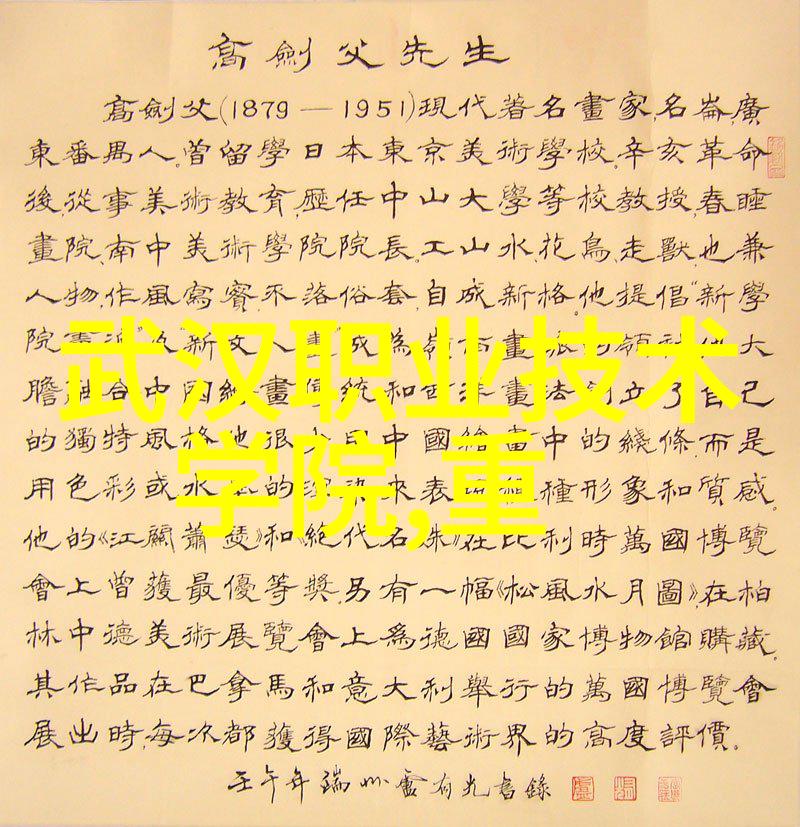 高劍父先生
高劍父(1879—1951)現代著名畫家,名崙,廣
東番禺人。曾留學日本東京美術學校,辛亥革命
後,從事美術教育,歷任中山大學等校教授,春睡
畫院、南中美術學院院長。工山水、花鳥、走獸,也兼
人物,作風寫實,不落俗套,自成新格。他提倡“新學
院畫派”及“新文人畫”成為嶺南畫派的領 他大
膽融合中國 畫傳統和西洋畫法,創立了自己
的獨特風格,他很 用中國繪畫中的綫條,而是
用色彩或水 的渲染來表現 種形象和質感。
他的《江關蕭瑟》和《絕代名姝》在比利時萬國博覽
會上曾獲最優等獎,另有一幅《松風水月圖》,在柏
林中德美術展覽會上爲德國國家博物館購藏。
其作品在巴拿馬和意大利舉行的萬國博覽會
展出時,每次都獲得國際藝術界的高度評價。
壬午年端州盧有光書錄
武汉职业技术
学院,重